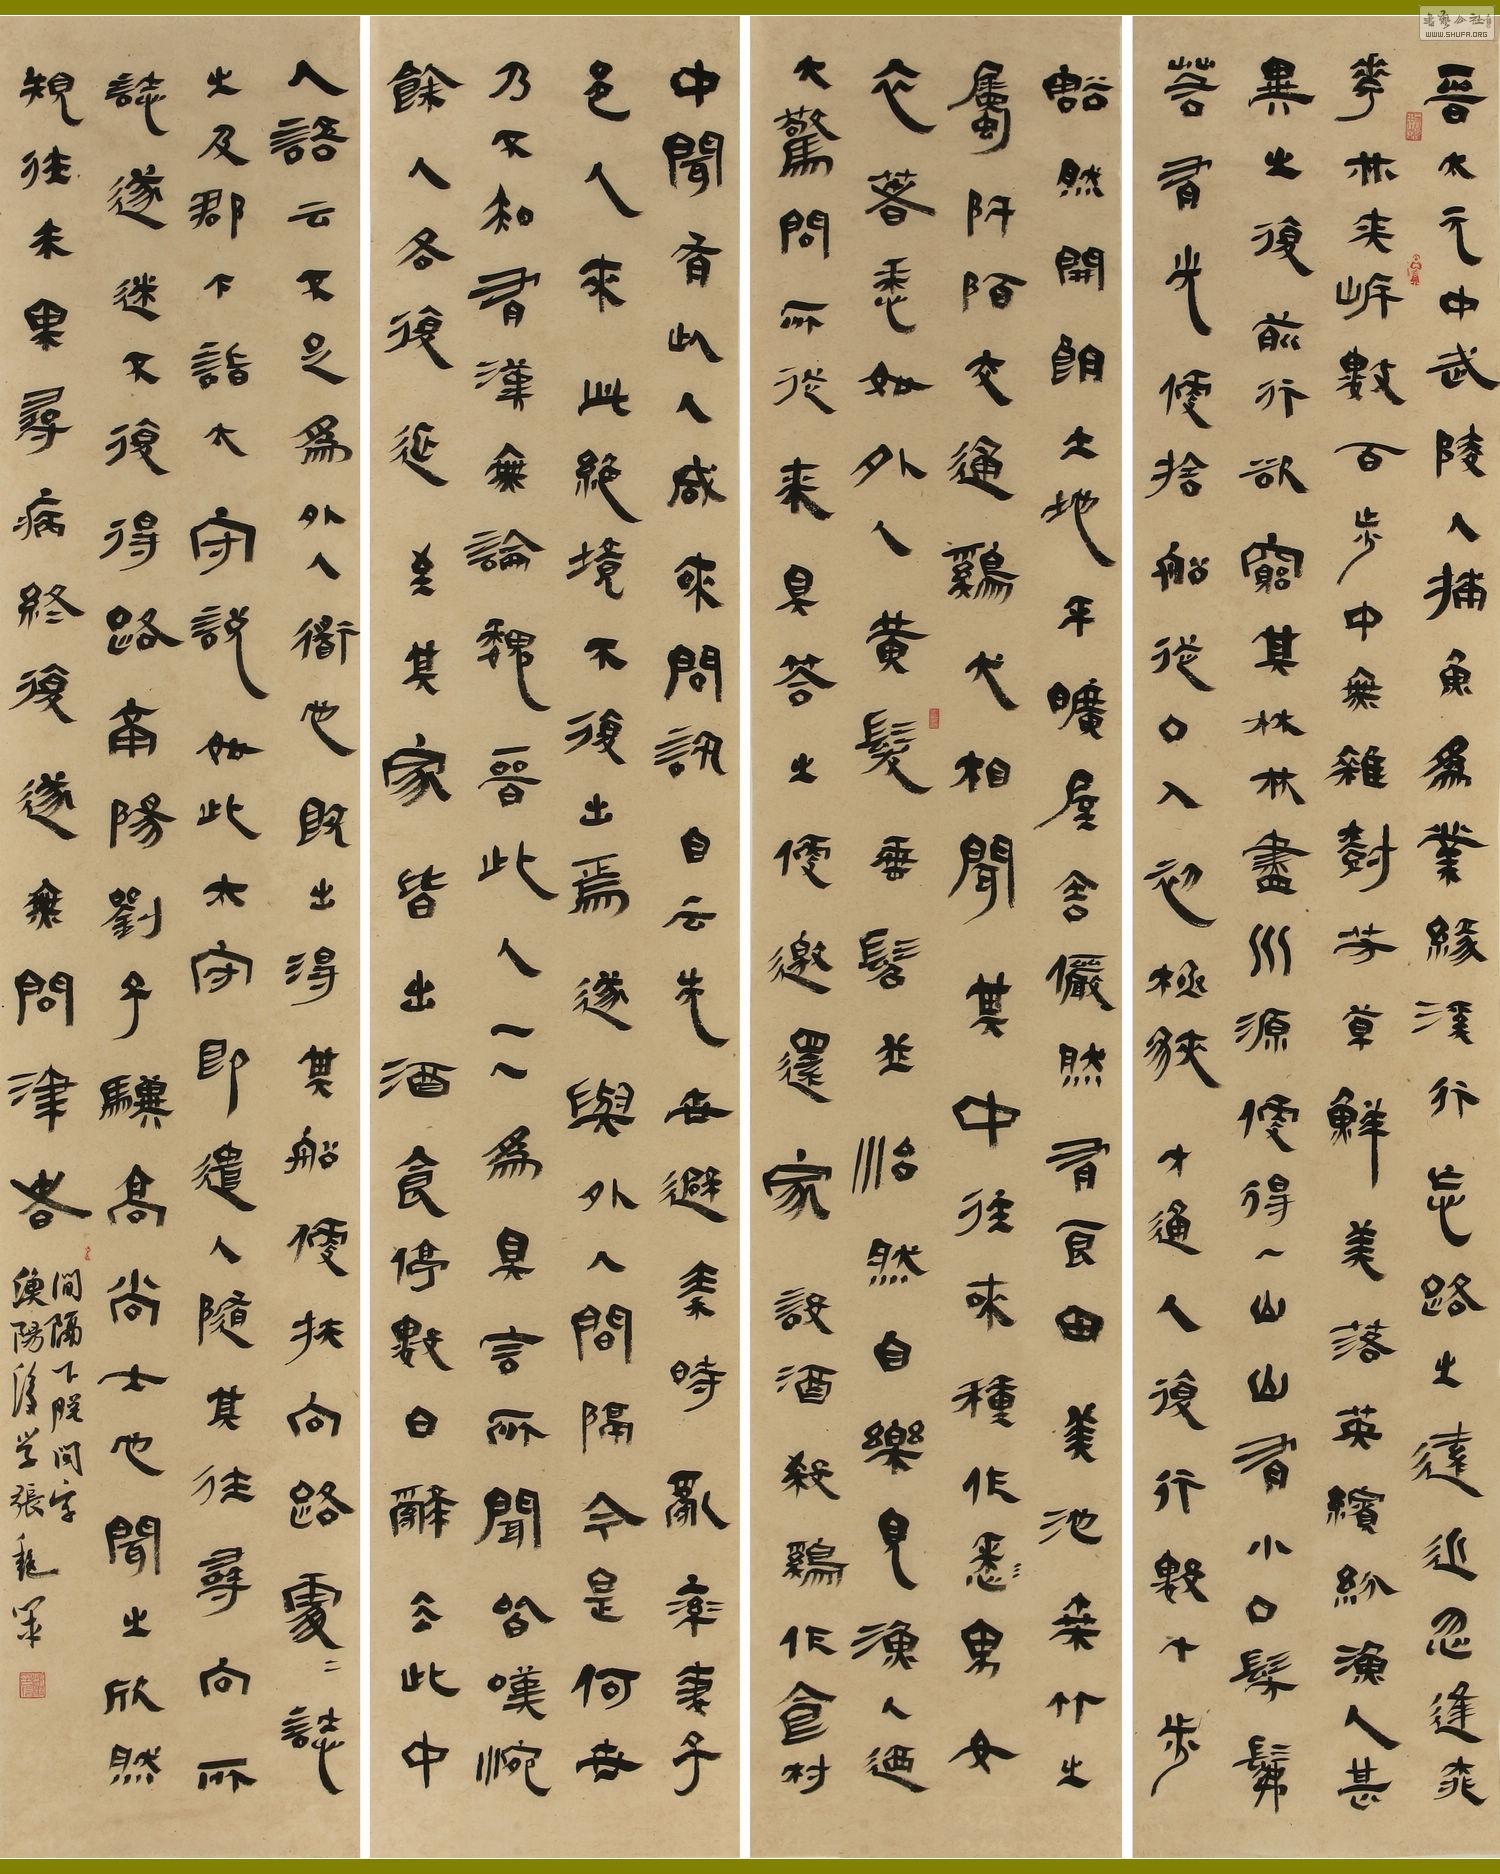 晉太元中武陵人捕魚爲業緣溪行忘路之遠近忽逢桃
華林夾岸數百步中無雜樹芳草鮮美落英繽紛漁人甚
異之復前行欲窮其林林盡水源便得一山山有小口髣髴
若有光便捨船從口入初極狹才通人復行數十步
豁然開朗土地平曠屋舍儼然有良田美池桑竹之
屬阡陌交通鷄犬相聞其中往來種作悉男女
衣著悉如外人黃髮垂髫並怡然自樂見漁人迺
大驚問所從來具答之便邀還家設酒殺鷄作食村
中聞有此人咸來問訊自云先世避秦時亂率妻子
邑人來此絕境不復出焉遂與外人間隔今是何世
乃不知有漢無論魏晉此人一一爲具言所聞皆嘆惋
餘人各復延至其家皆出酒食停數日辭去此中
人語云不足爲外人衜也既出得其船便扶向路處〻誌
之及郡下詣太守說如此太守即遣人隨其往尋向所
誌遂迷不復得路南陽劉子驥高尚士也聞之欣然
規往未果尋病終復遂無問津者
間隔下脫問字
漁陽後学張
WWW.SHUFA.ORG